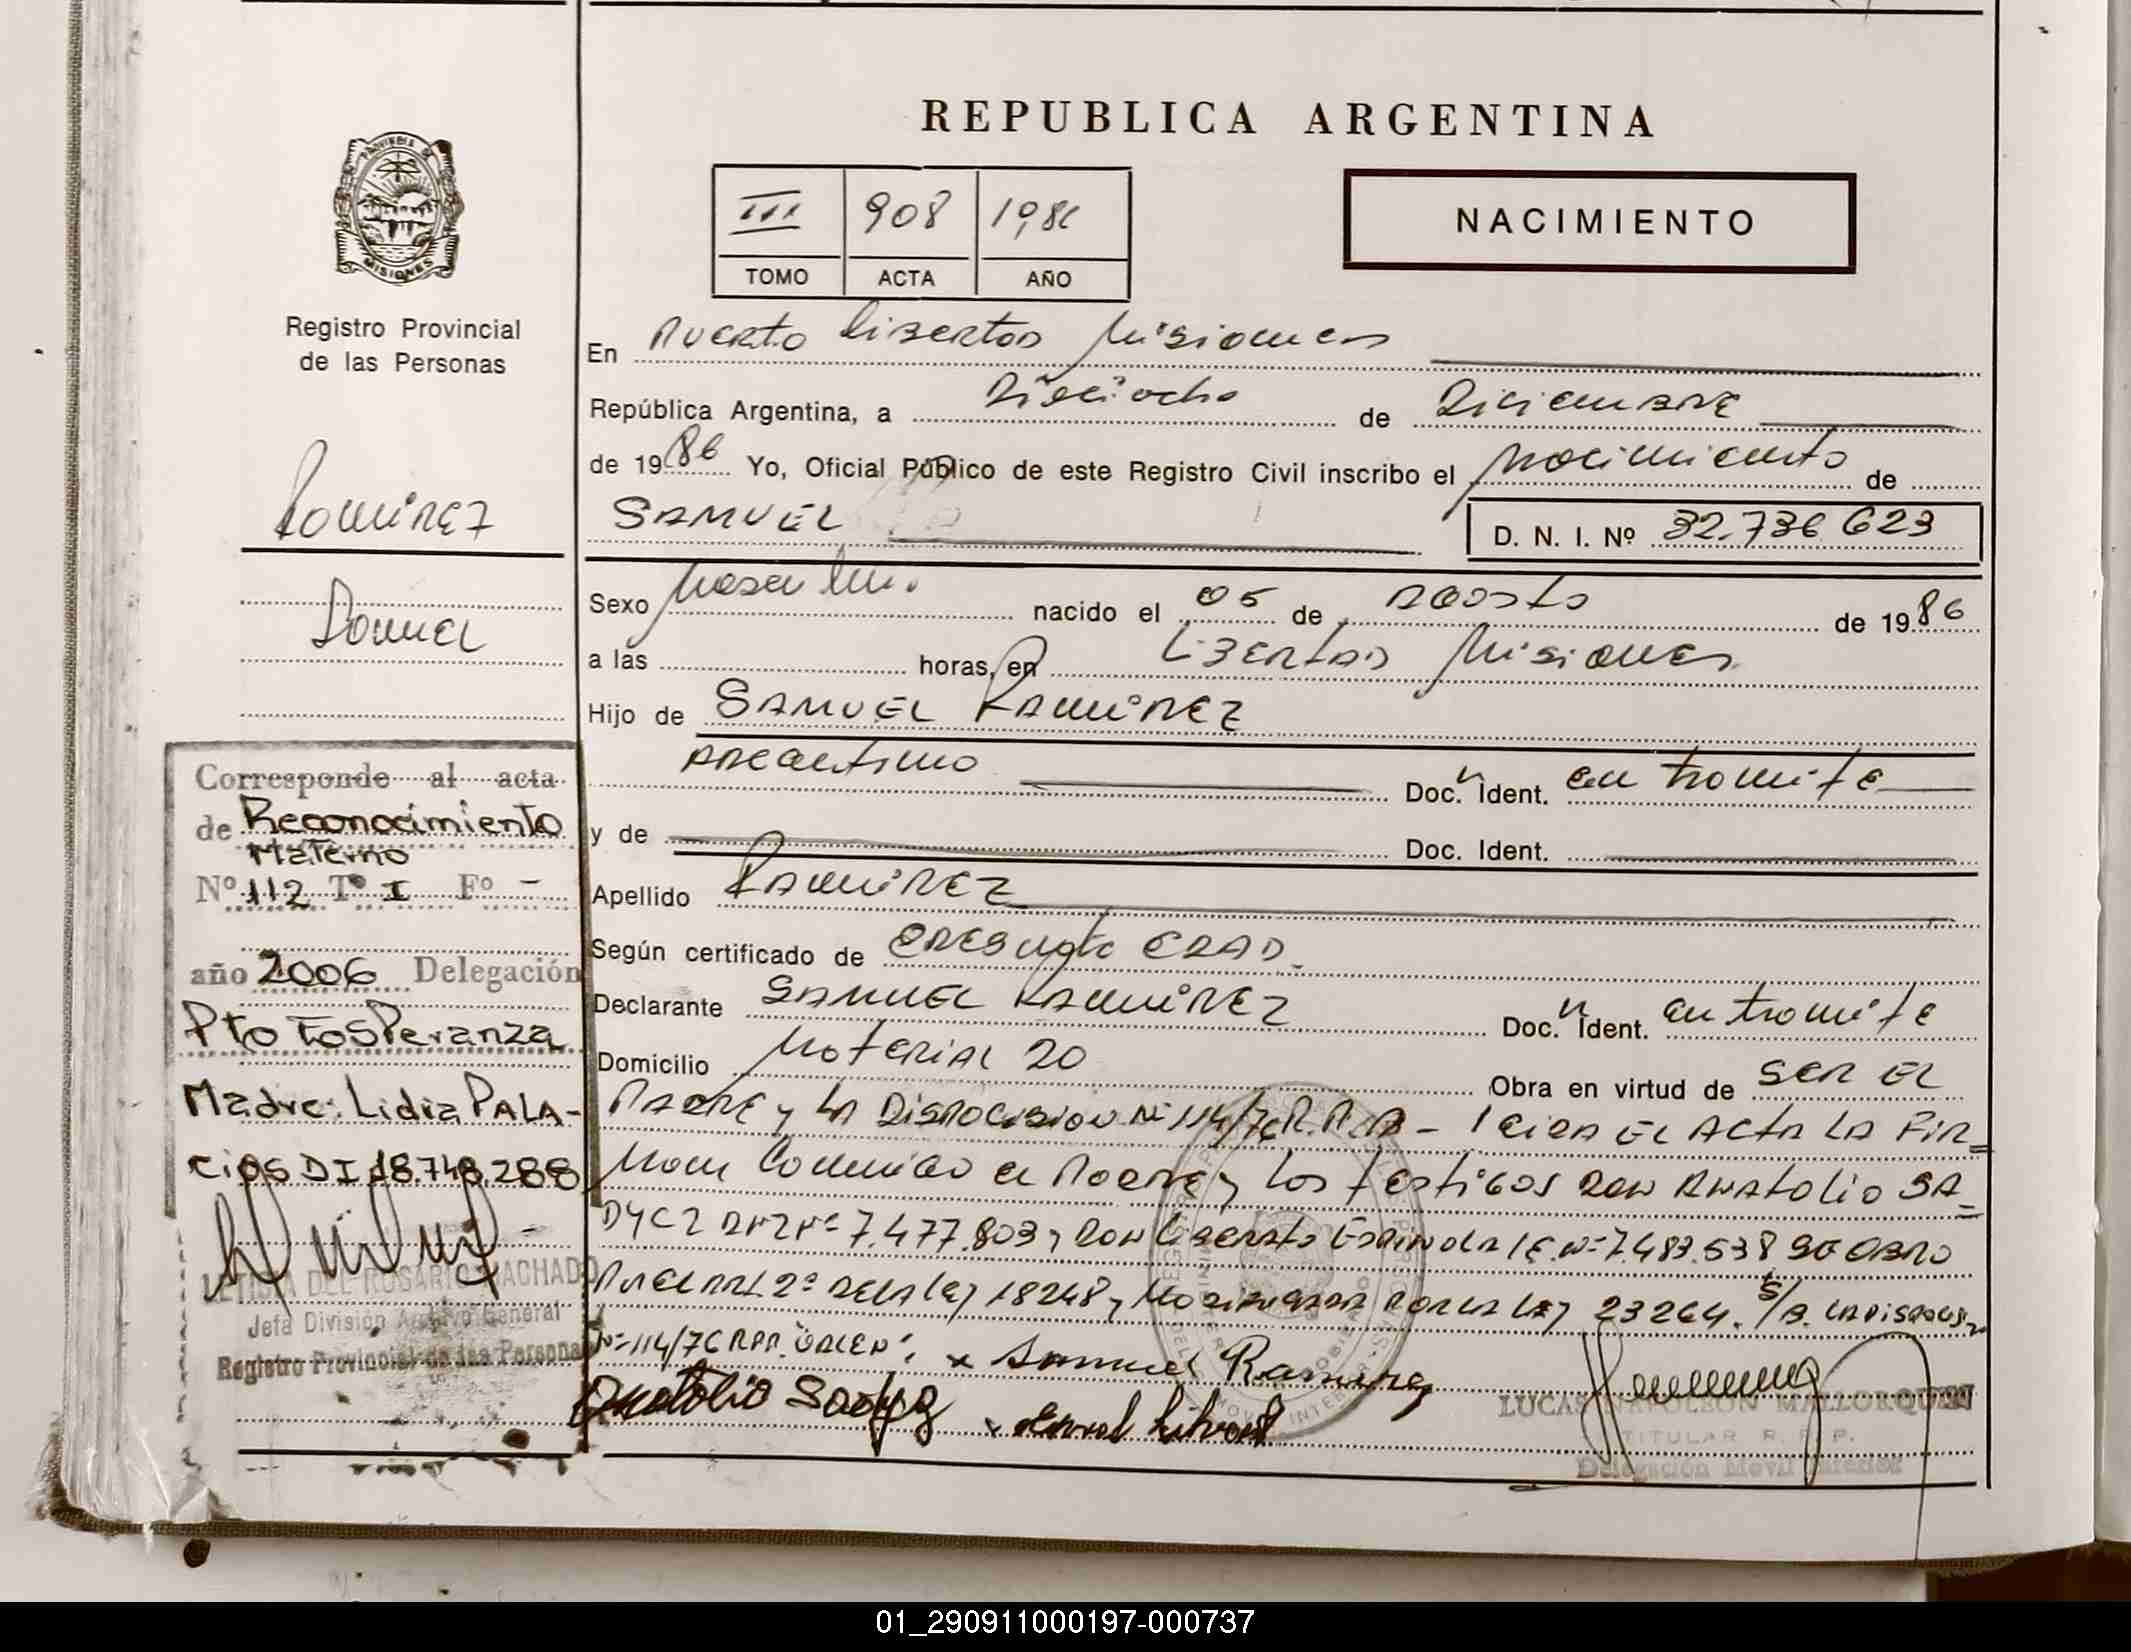 REPUBLICA ARGENTINA
III 908 1986
TOMO ACTA AÑO
NACIMIENTO
PROVINCIA DE
MISIONES
Registro Provincial
de las Personas
Ramirez
Samuel
En Puerto Libertad Misiones
República Argentina, a Dieciocho de Diciembre
de 1986 Yo, Oficial Público de este Registro Civil inscribo el Nacimiento de
SAMUEL D. N. I. Nº 32.736.623
Sexo Masculino nacido el 05 de Agosto de 1986
a las horas, en Libertad Misiones
Hijo de SAMUEL RAMIREZ
Argentino Doc. Ident. en tramite
y de Doc. Ident.
Apellido RAMIREZ
Según certificado de PRESUNTA EDAD
Declarante SAMUEL RAMIREZ Doc. Ident. en tramite
Domicilio Material 20 Obra en virtud de SER EL
PADRE y LA Disposicion Nº 114/76 R.P.P. - Leida EL ACTA LA FIR=
man Conmigo el Padre y Los testigos DON ANAtolio SA=
DNI Nº 7.477.803 y DON Liberato Espindola L.E. Nº 7.483.538 SE OBRO
ART 2º DE LA LEY 18248 y POR LA LEY 23264.
Nº 114/76 RPP.
x Samuel Ramirez
Anatolio
LUCAS NAPOLEON MALLORQUIN
TITULAR R. P. P.
Delegación Movil
Corresponde al acta
de Reconocimiento
Materno
Nº 112 Tº I Fº -
año 2006 Delegación
Pto Esperanza
Madre: Lidia PALA-
CiOS DI 18.748.288
LETICIA DEL ROSARIO MACHADO
Jefa División Archivo General
Registro Provincial de las Personas
01_290911000197-000737